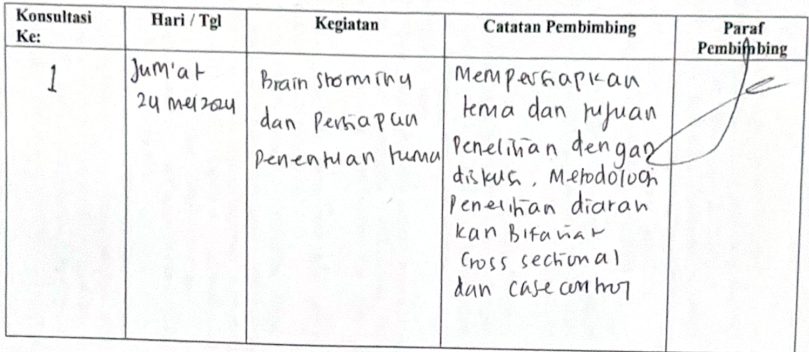 Konsultasi Ke:
Hari / Tgl
Kegiatan
Catatan Pembimbing
Paraf Pembimbing
1
Jum'at
24 mei 2024
Brain storming
dan Persiapan
Penentuan tema
Mempersiapkan
tema dan tujuan
Penelitian dengan
diskusi, Metodologi
Penelitian diarah
kan Bifariat
Cross sectional
dan case control